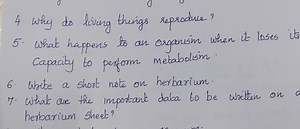 4 Why do living things reproduce?
5. What happens to an organism when it loses its
Capacity to perform metabolism.
6. Write a short note on herbarium.
7. What are the important data to be written on a
herbarium sheet?